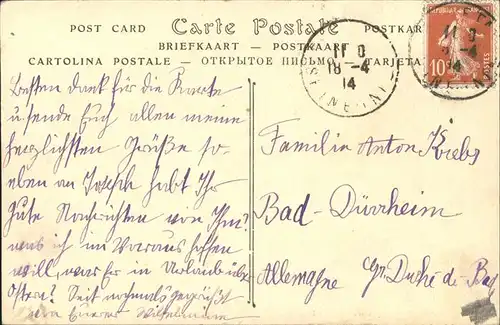 POST CARD Carte Postale POSTKARTE
BRIEFKAART — POSTKAART
CARTOLINA POSTALE — ОТКРЫТОЕ ПИСЬМО — TARJETA
11 D
18 -4
14
10
Besten Dank für die Karte
u. sende Euch allen meine
herzlichsten Grüße so-
eben an Joseph habt Ihr
Gute Nachrichten von Ihm?
was ich im Voraus hoffen
will, war Er in Urlaub über
Ostern? Seit nochmals gegrüßt
von Eurer Wilhelmine
Familie Anton Krebs
Bad-Dürrheim
Allemagne Gr. Duché de Bad